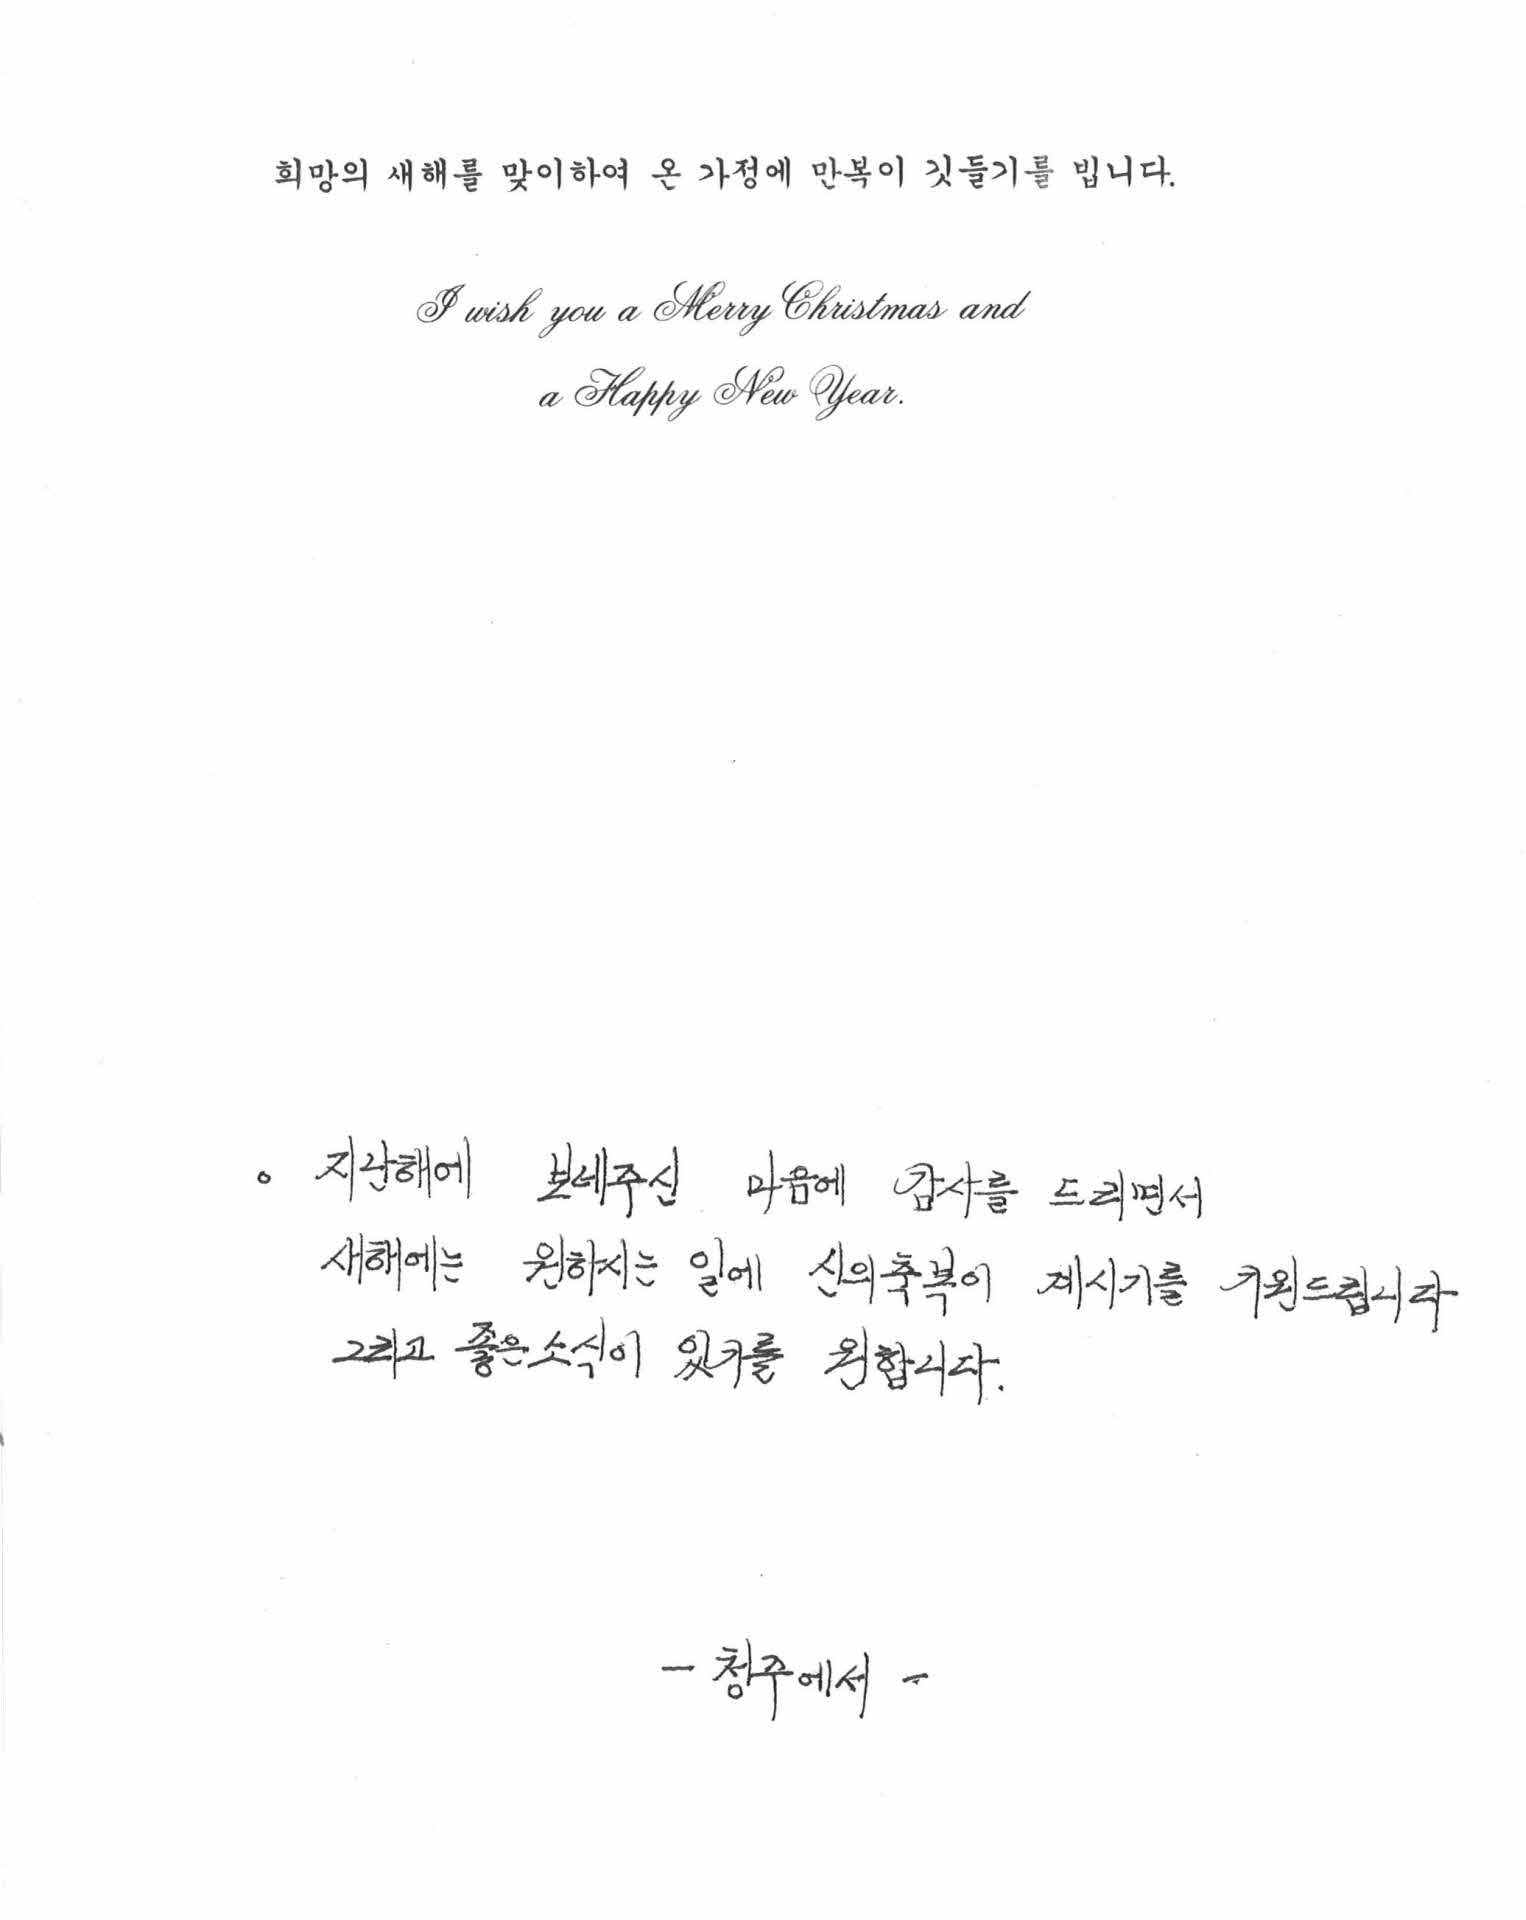 희망의 새해를 맞이하여 온 가정에 만복이 깃들기를 빕니다.
I wish you a Merry Christmas and
a Happy New Year.
。 지난해에 보네주신 마음에 감사를 드리면서
새해에는 원하시는 일에 신의축복이 계시기를 기원드립니다
그리고 좋은소식이 있기를 원합니다.
- 청주에서 -